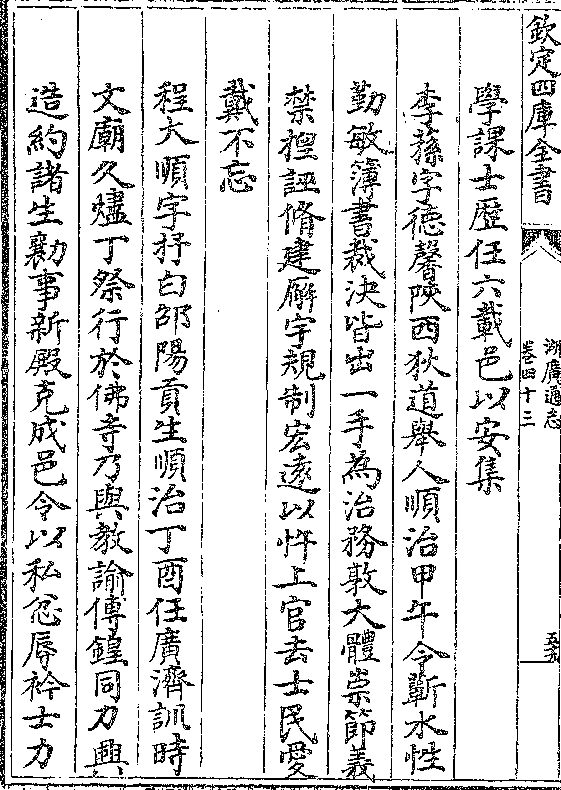 欽定四庫全書
湖廣通志
卷四十三
學課士歷任六載邑以安集
李蓀字德馨陜西狄道舉人順治甲午令蘄水性
勤敏簿書裁決皆出一手為治務敦大體崇節義
禁搜誣脩建廨宇規制宏遠以忤上官去士民愛
戴不忘
程大順字抒白邵陽貢生順治丁酉任廣濟訓時
文廟久燼丁祭行於佛寺乃與教諭傅鍠同力興
造約諸生勷事新殿克成邑令以私忿辱衿士力